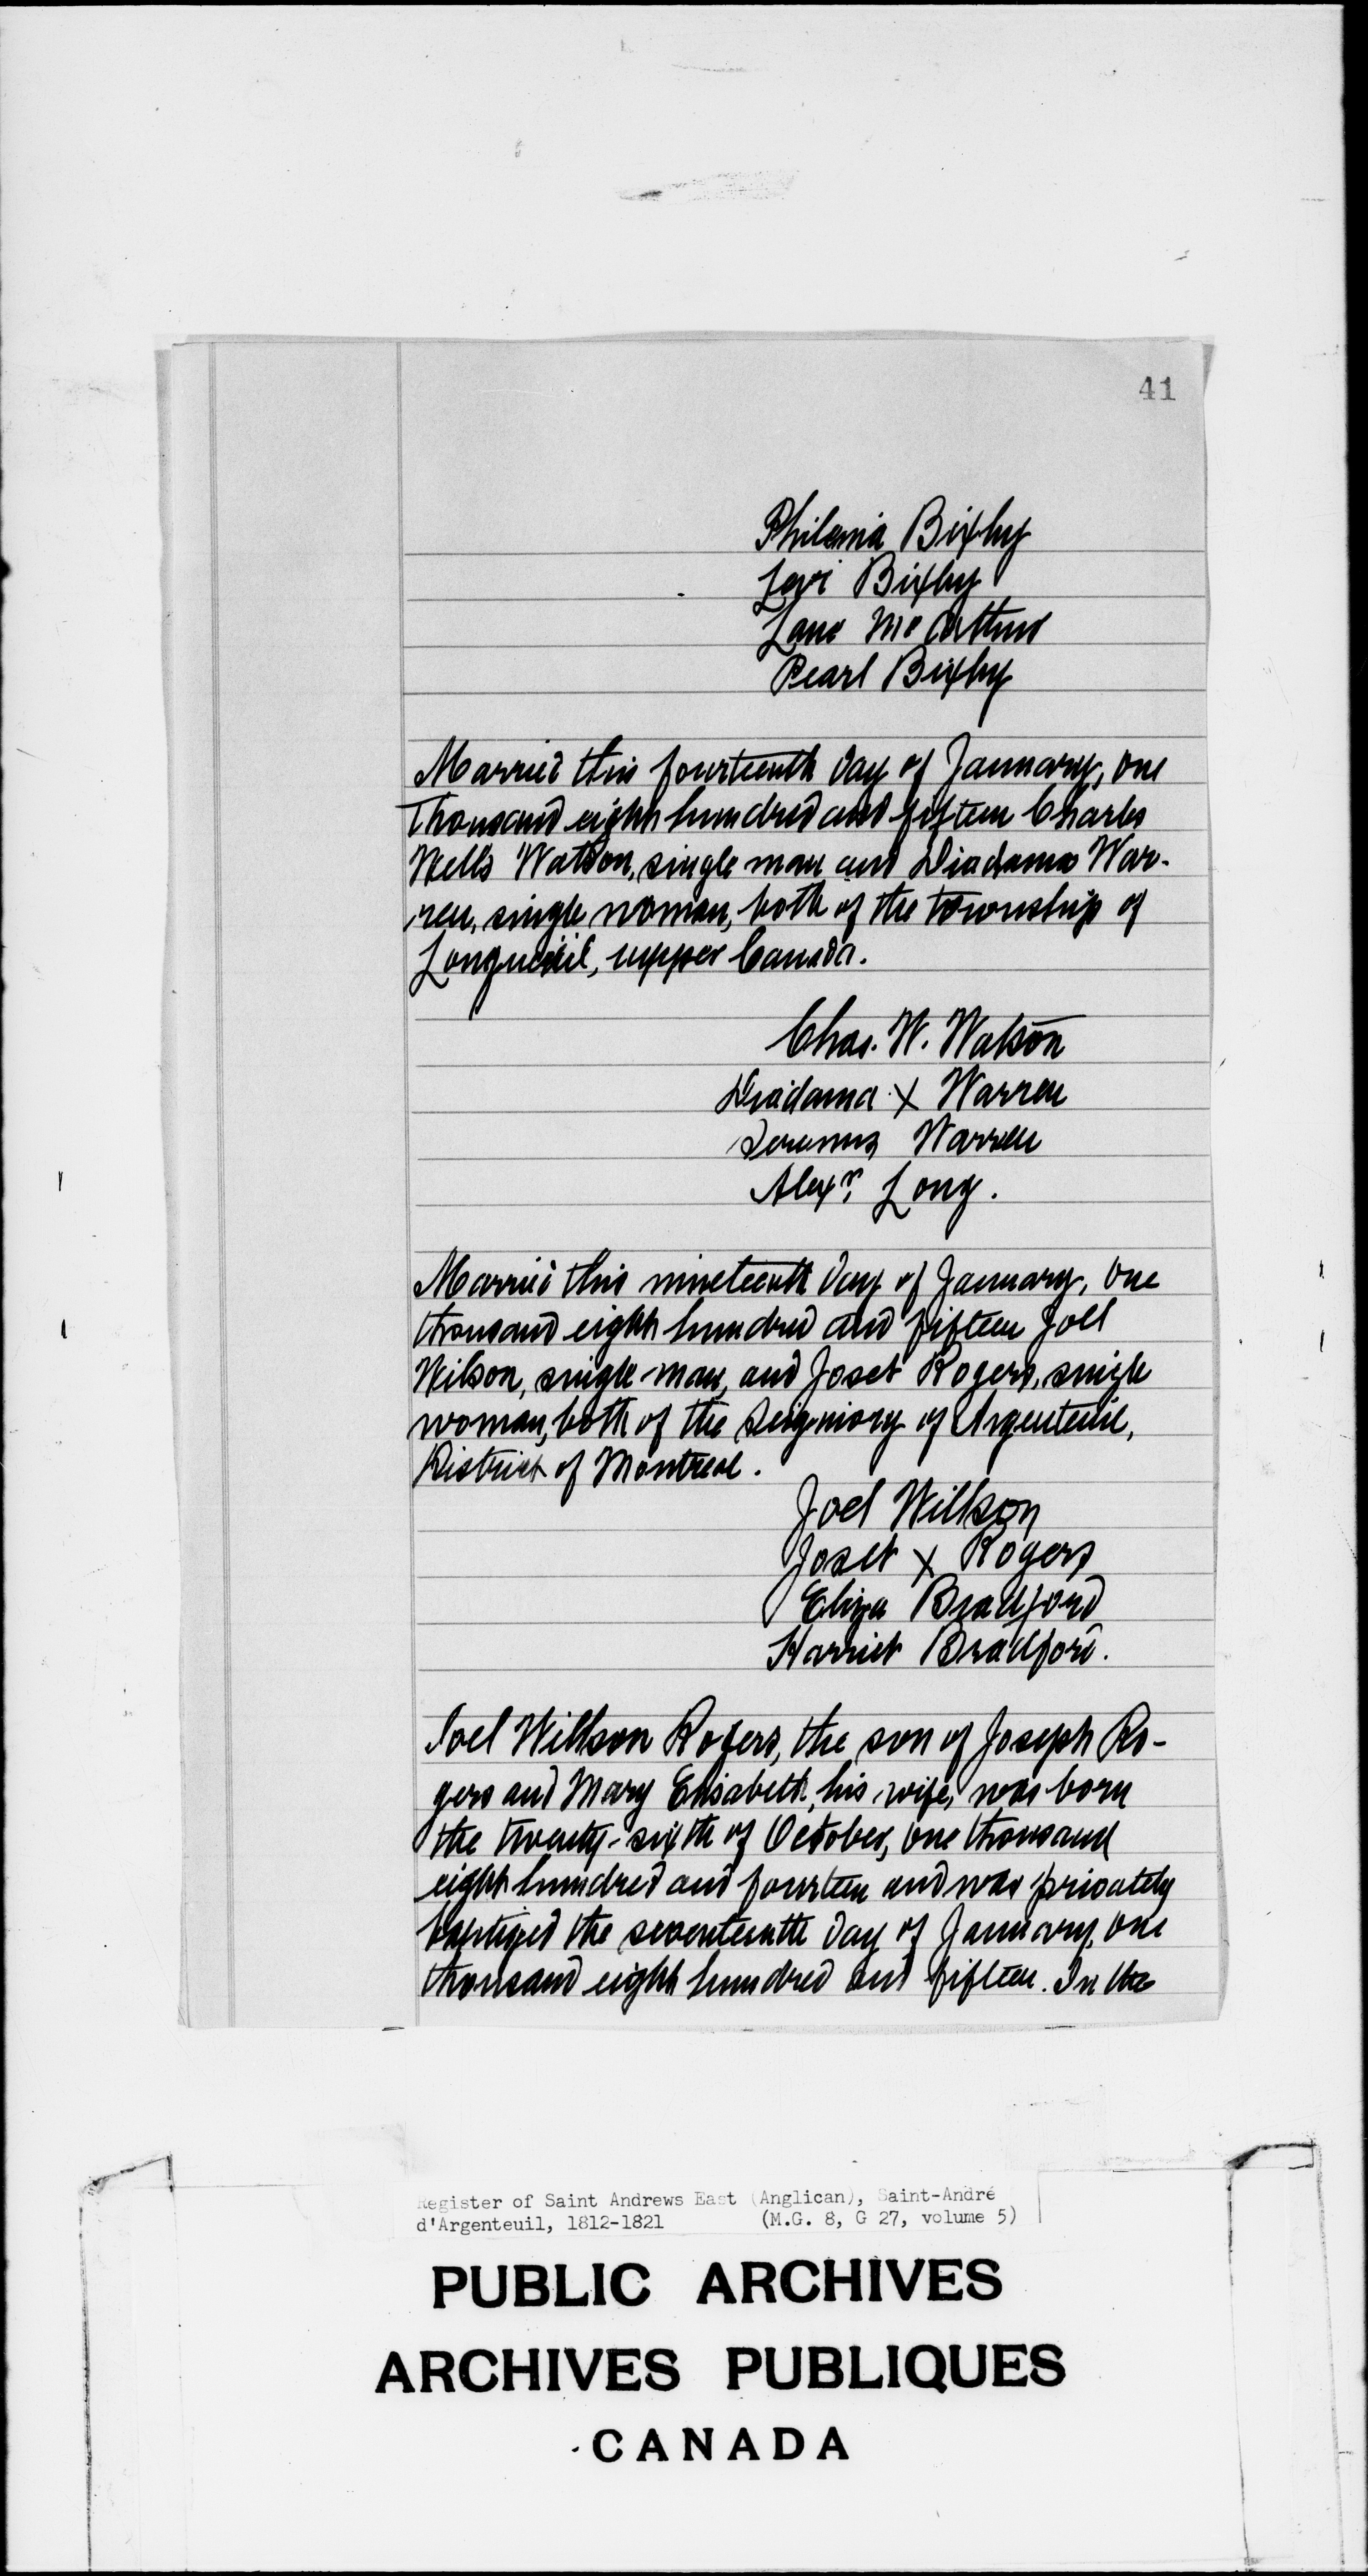 41
Philemia Bixby
Levi Bixby
Lane McArthur
Pearl Bixby
Married this fourteenth day of January, one
thousand eight hundred and fifteen Charles
Wells Watson, single man and Diadama War-
ren, single woman, both of the township of
Longueuil, upper Canada.
Chas. W. Watson
Diadama X Warren
Warren
Alexr. Long.
Married this nineteenth day of January, one
thousand eight hundred and fifteen Joel
Wilson, single man, and Joset Rogers, single
woman, both of the Seigniory of Argenteuil,
District of Montreal.
Joel Willson
Joset X Rogers
Eliza Bradford
Harriet Bradford.
Joel Willson Rogers, the son of Joseph Ro-
gers and Mary Elisabeth, his wife, was born
the twenty-sixth of October, one thousand
eight hundred and fourteen and was privately
baptized the seventeenth day of January, one
thousand eight hundred and fifteen. In the
Register of Saint Andrews East (Anglican), Saint-André
d'Argenteuil, 1812-1821 (M.G. 8, G 27, volume 5)
PUBLIC ARCHIVES
ARCHIVES PUBLIQUES
CANADA